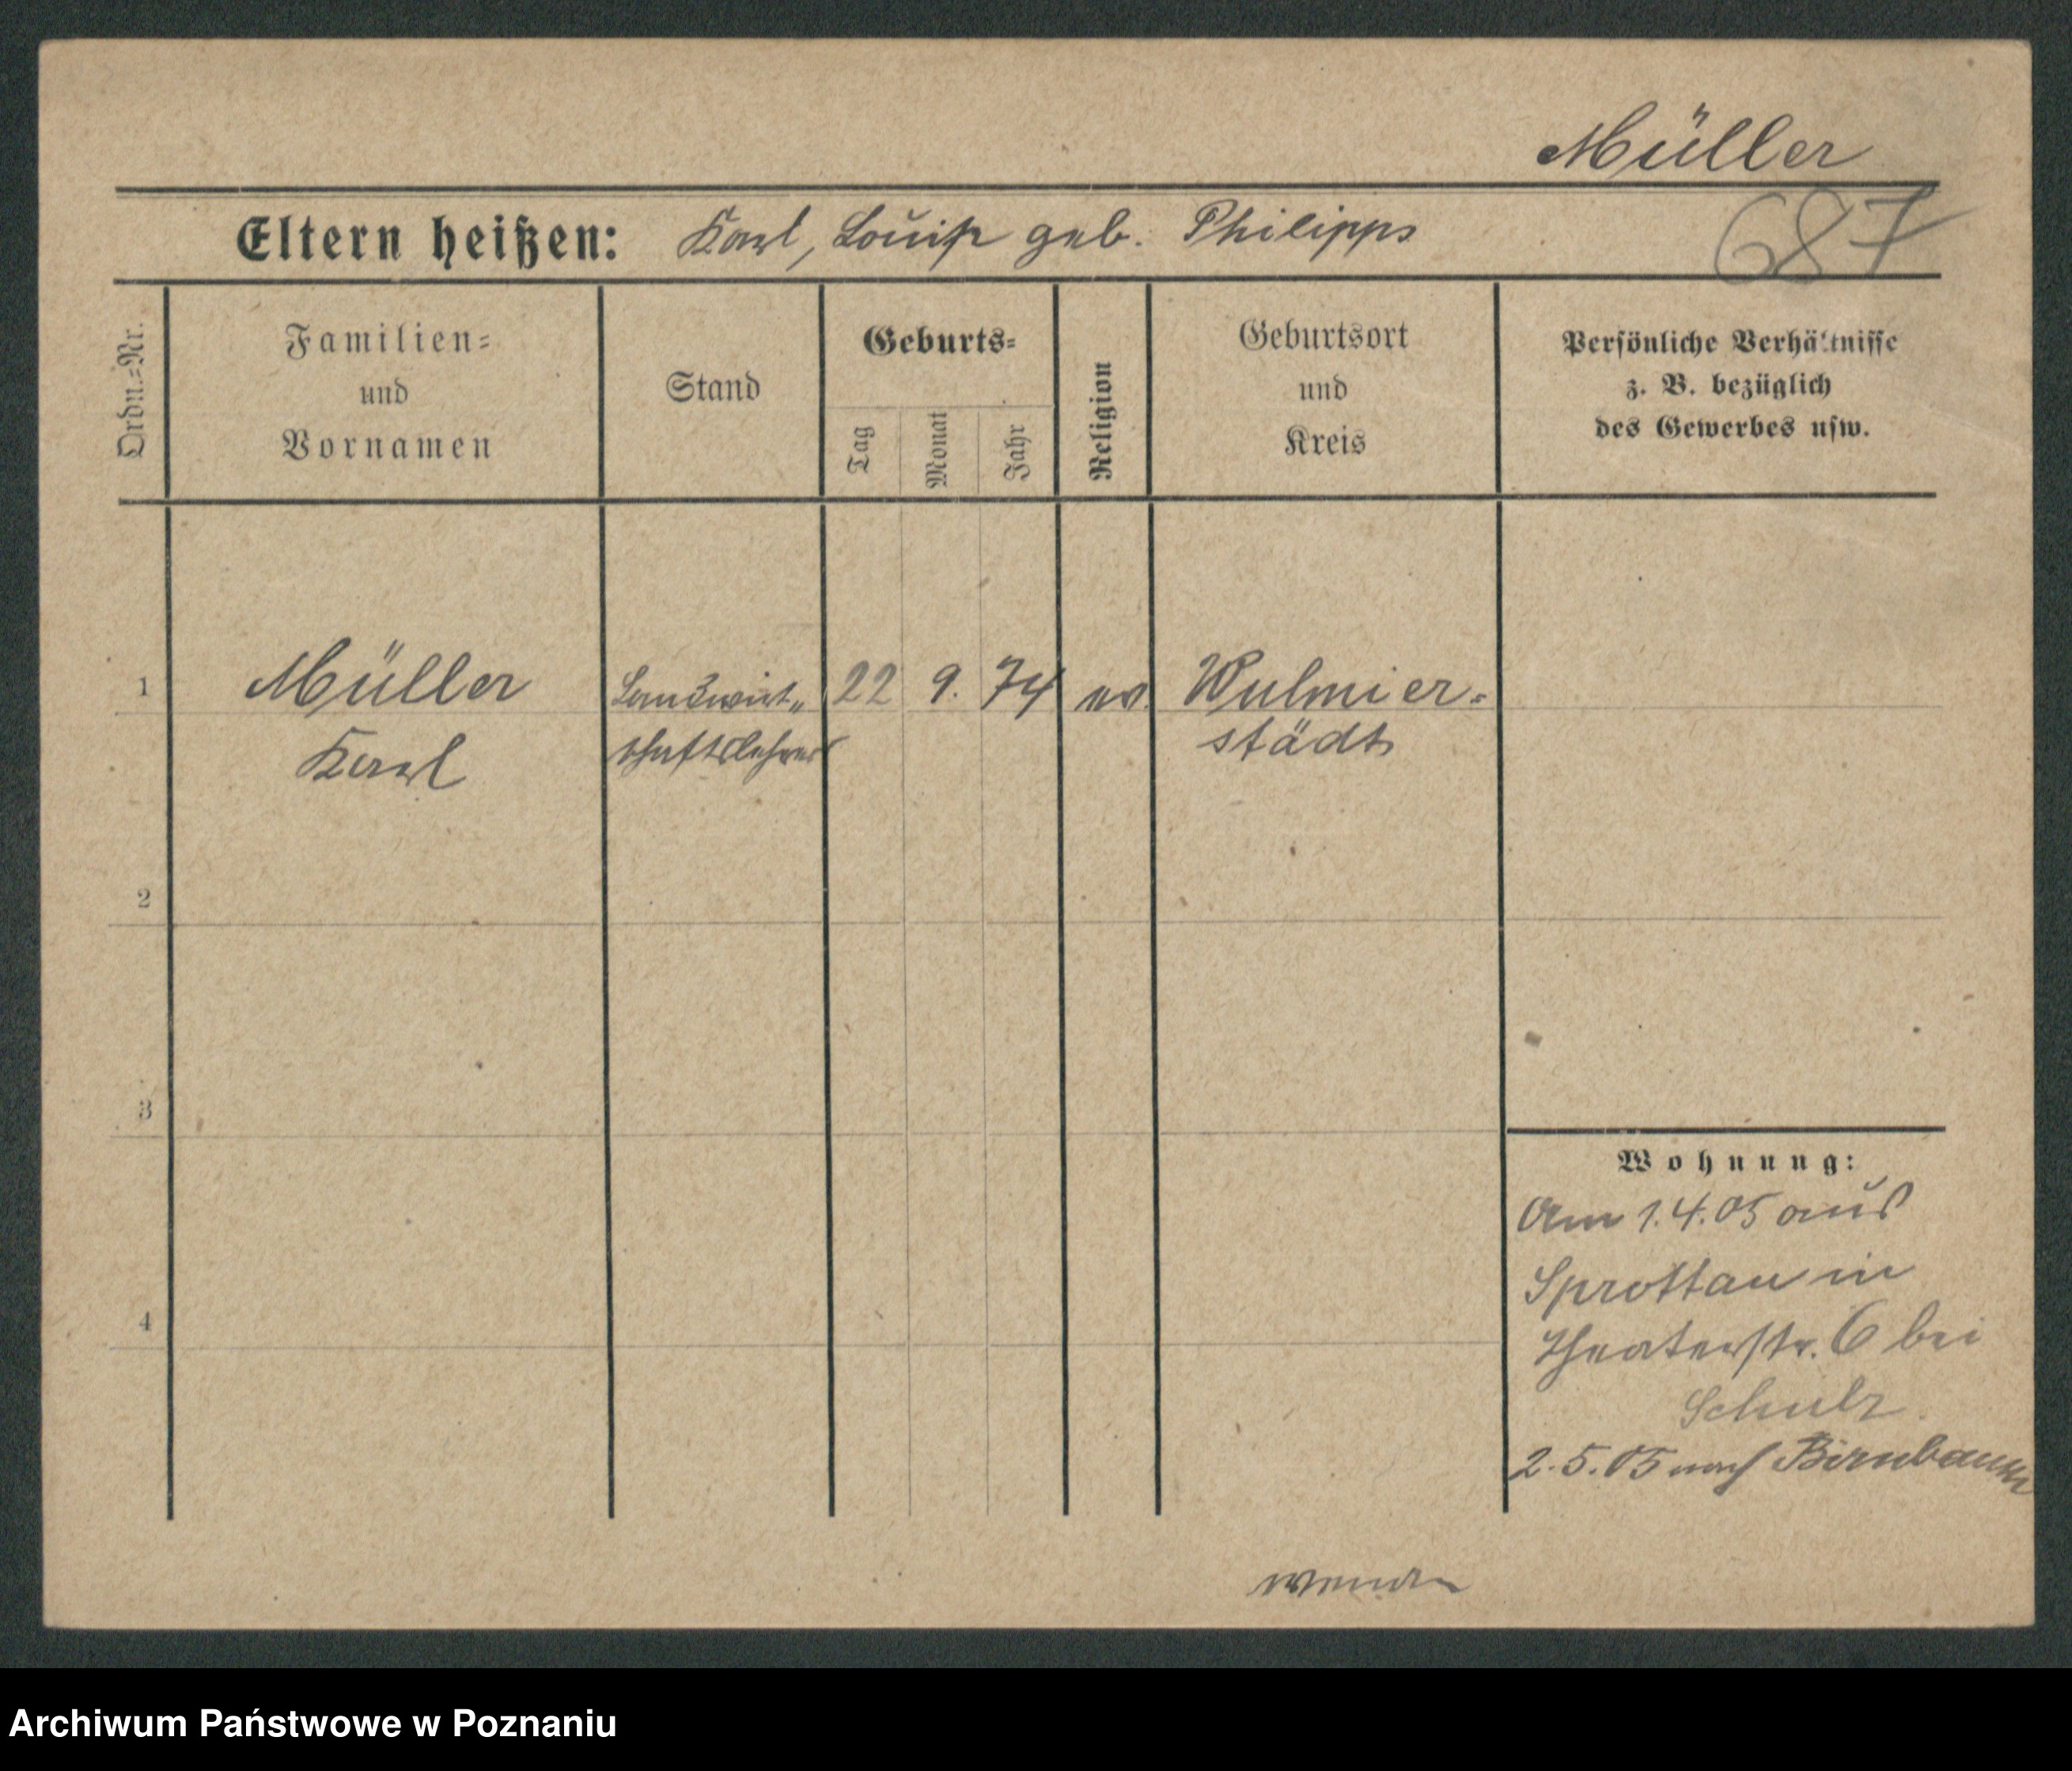 Müller
687
Eltern heißen: Karl, Louise geb. Philipps
Ordn.=Nr.
Familien=
und
Vornamen
Stand
Geburts=
Tag
Monat
Jahr
Religion
Geburtsort
und
Kreis
Persönliche Verhältnisse
z. B. bezüglich
des Gewerbes usw.
1 Müller Landwirt„ 22 9. 74 ev. Wulmier=
Karl schaftslehrer städt
2
3
4
Wohnung:
Am 1.4.05 aus
Sprottau in
Theaterstr. 6 bei
Schulz
2.5.05 nach Birnbaum
wenden
Archiwum Państwowe w Poznaniu